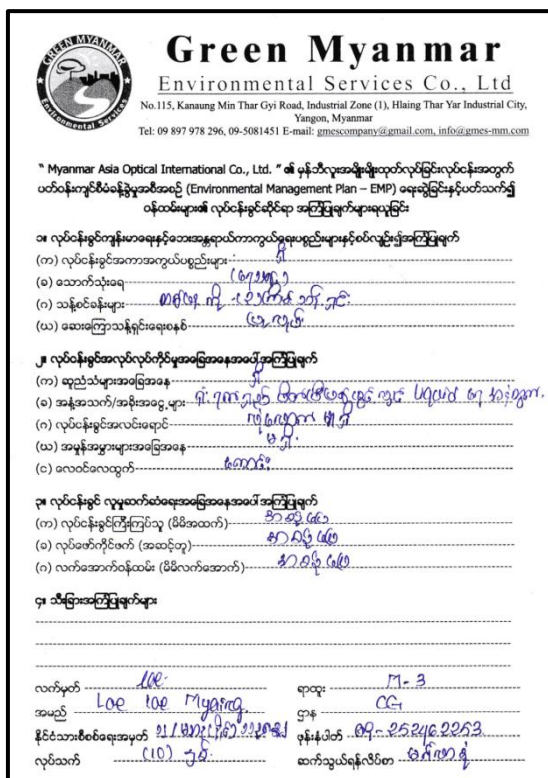 GREEN MYANMAR
Environmental Services
Green Myanmar
Environmental Services Co., Ltd
No.115, Kanaung Min Thar Gyi Road, Industrial Zone (1), Hlaing Thar Yar Industrial City,
Yangon, Myanmar
Tel: 09 897 978 296, 09-5081451 E-mail: gmescompany@gmail.com, info@gmes-mm.com
" Myanmar Asia Optical International Co., Ltd. " ၏ မှန်ဘီလူးအမျိုးမျိုးထုတ်လုပ်ခြင်းလုပ်ငန်းအတွက်
ပတ်ဝန်းကျင်စီမံခန့်ခွဲမှုအစီအစဉ် (Environmental Management Plan – EMP) ရေးဆွဲခြင်းနှင့်ပတ်သက်၍
ဝန်ထမ်းများ၏ လုပ်ငန်းခွင်ဆိုင်ရာ အကြံပြုချက်များရယူခြင်း
၁။ လုပ်ငန်းခွင်ကျန်းမာရေးနှင့်ဘေးအန္တရာယ်ကာကွယ်ရေးပစ္စည်းများနှင့်စပ်လျဉ်း၍အကြံပြုချက်
(က) လုပ်ငန်းခွင်အကာအကွယ်ပစ္စည်းများ ရှိ
(ခ) သောက်သုံးရေ
(ဂ) သန့်စင်ခန်းများ
(ဃ) ဆေးကြောသန့်ရှင်းရေးစနစ်
၂။ လုပ်ငန်းခွင်အလုပ်လုပ်ကိုင်မှုအခြေအနေအပေါ်အကြံပြုချက်
(က) ဆူညံသံများအခြေအနေ ရှိ
(ခ) အနံ့အသက်/အခိုးအငွေ့များ
(ဂ) လုပ်ငန်းခွင်အလင်းရောင်
(ဃ) အမှုန်အမွှားများအခြေအနေ မရှိ
(င) လေဝင်လေထွက် ကောင်း
၃။ လုပ်ငန်းခွင် လူမှုဆက်ဆံရေးအခြေအနေအပေါ်အကြံပြုချက်
(က) လုပ်ငန်းခွင်ကြီးကြပ်သူ (မိမိအထက်) အဆင်ပြေ
(ခ) လုပ်ဖော်ကိုင်ဖက် (အဆင့်တူ) အဆင်ပြေ
(ဂ) လက်အောက်ဝန်ထမ်း (မိမိလက်အောက်) အဆင်ပြေ
၄။ သီးခြားအကြံပြုချက်များ
လက်မှတ် ရာထူး M-3
အမည် ဌာန CG
နိုင်ငံသားစိစစ်ရေးအမှတ် ဖုန်းနံပါတ် 09-252462253
လုပ်သက် (10) နှစ် ဆက်သွယ်ရန်လိပ်စာ